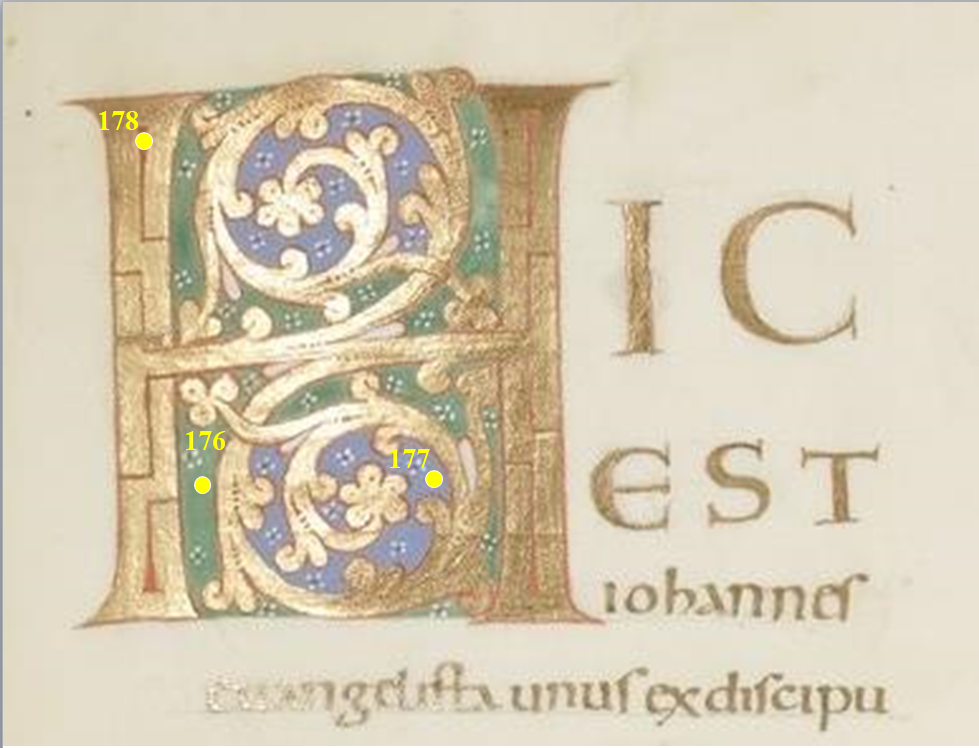 178
H IC
176
177
EST
iohanneſ
euangeliſta unuſ ex diſcipu